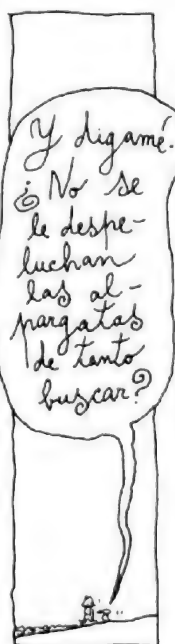 Y digamé.
¿No se
le despe-
luchan
las al-
pargatas
de tanto
buscar?